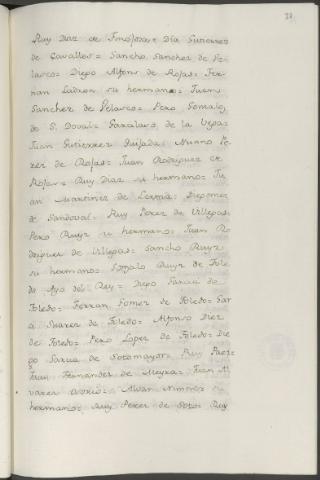 Ruy Diaz de Finojosa= Dia Gutierres
de Cavallos= Sancho Sanchez de Ve-
lasco= Diego Alfons de Rojas= Fer-
nan Ladron su hermano=
Sanchez de Velasco= Pero Gonsalo,
de S. Doval= Garcilaso de la Vega=
Juan Gutierrez Quijada= Nunno Pe-
rez de Rojas= Juan Rodriguez de
Rojas= Ruy Diaz su hermano= Ju-
an Martinez de Lerma=
de Sandoval= Ruy Perez de Villegas=
Pero Ruyz su hermano= Juan Ro-
driguez de Villegas= Sancho Ruyz
su hermano= Gonzalo Ruyz de Tole-
do Ayo del Rey= Diego Garcia de
Toledo= Ferran Gomez de Toledo= Gar-
a Suarez de Toledo= Alfonso Diez
de Toledo= Pero Lopez de Toledo= Die-
go Garcia de Sotomayor= Ruy Paez=
Juan Fernandez de Meyra= Juan Al-
varez Osorio= Alvar Nunnez su
hermano= Ruy Perez de Soto= Ruy